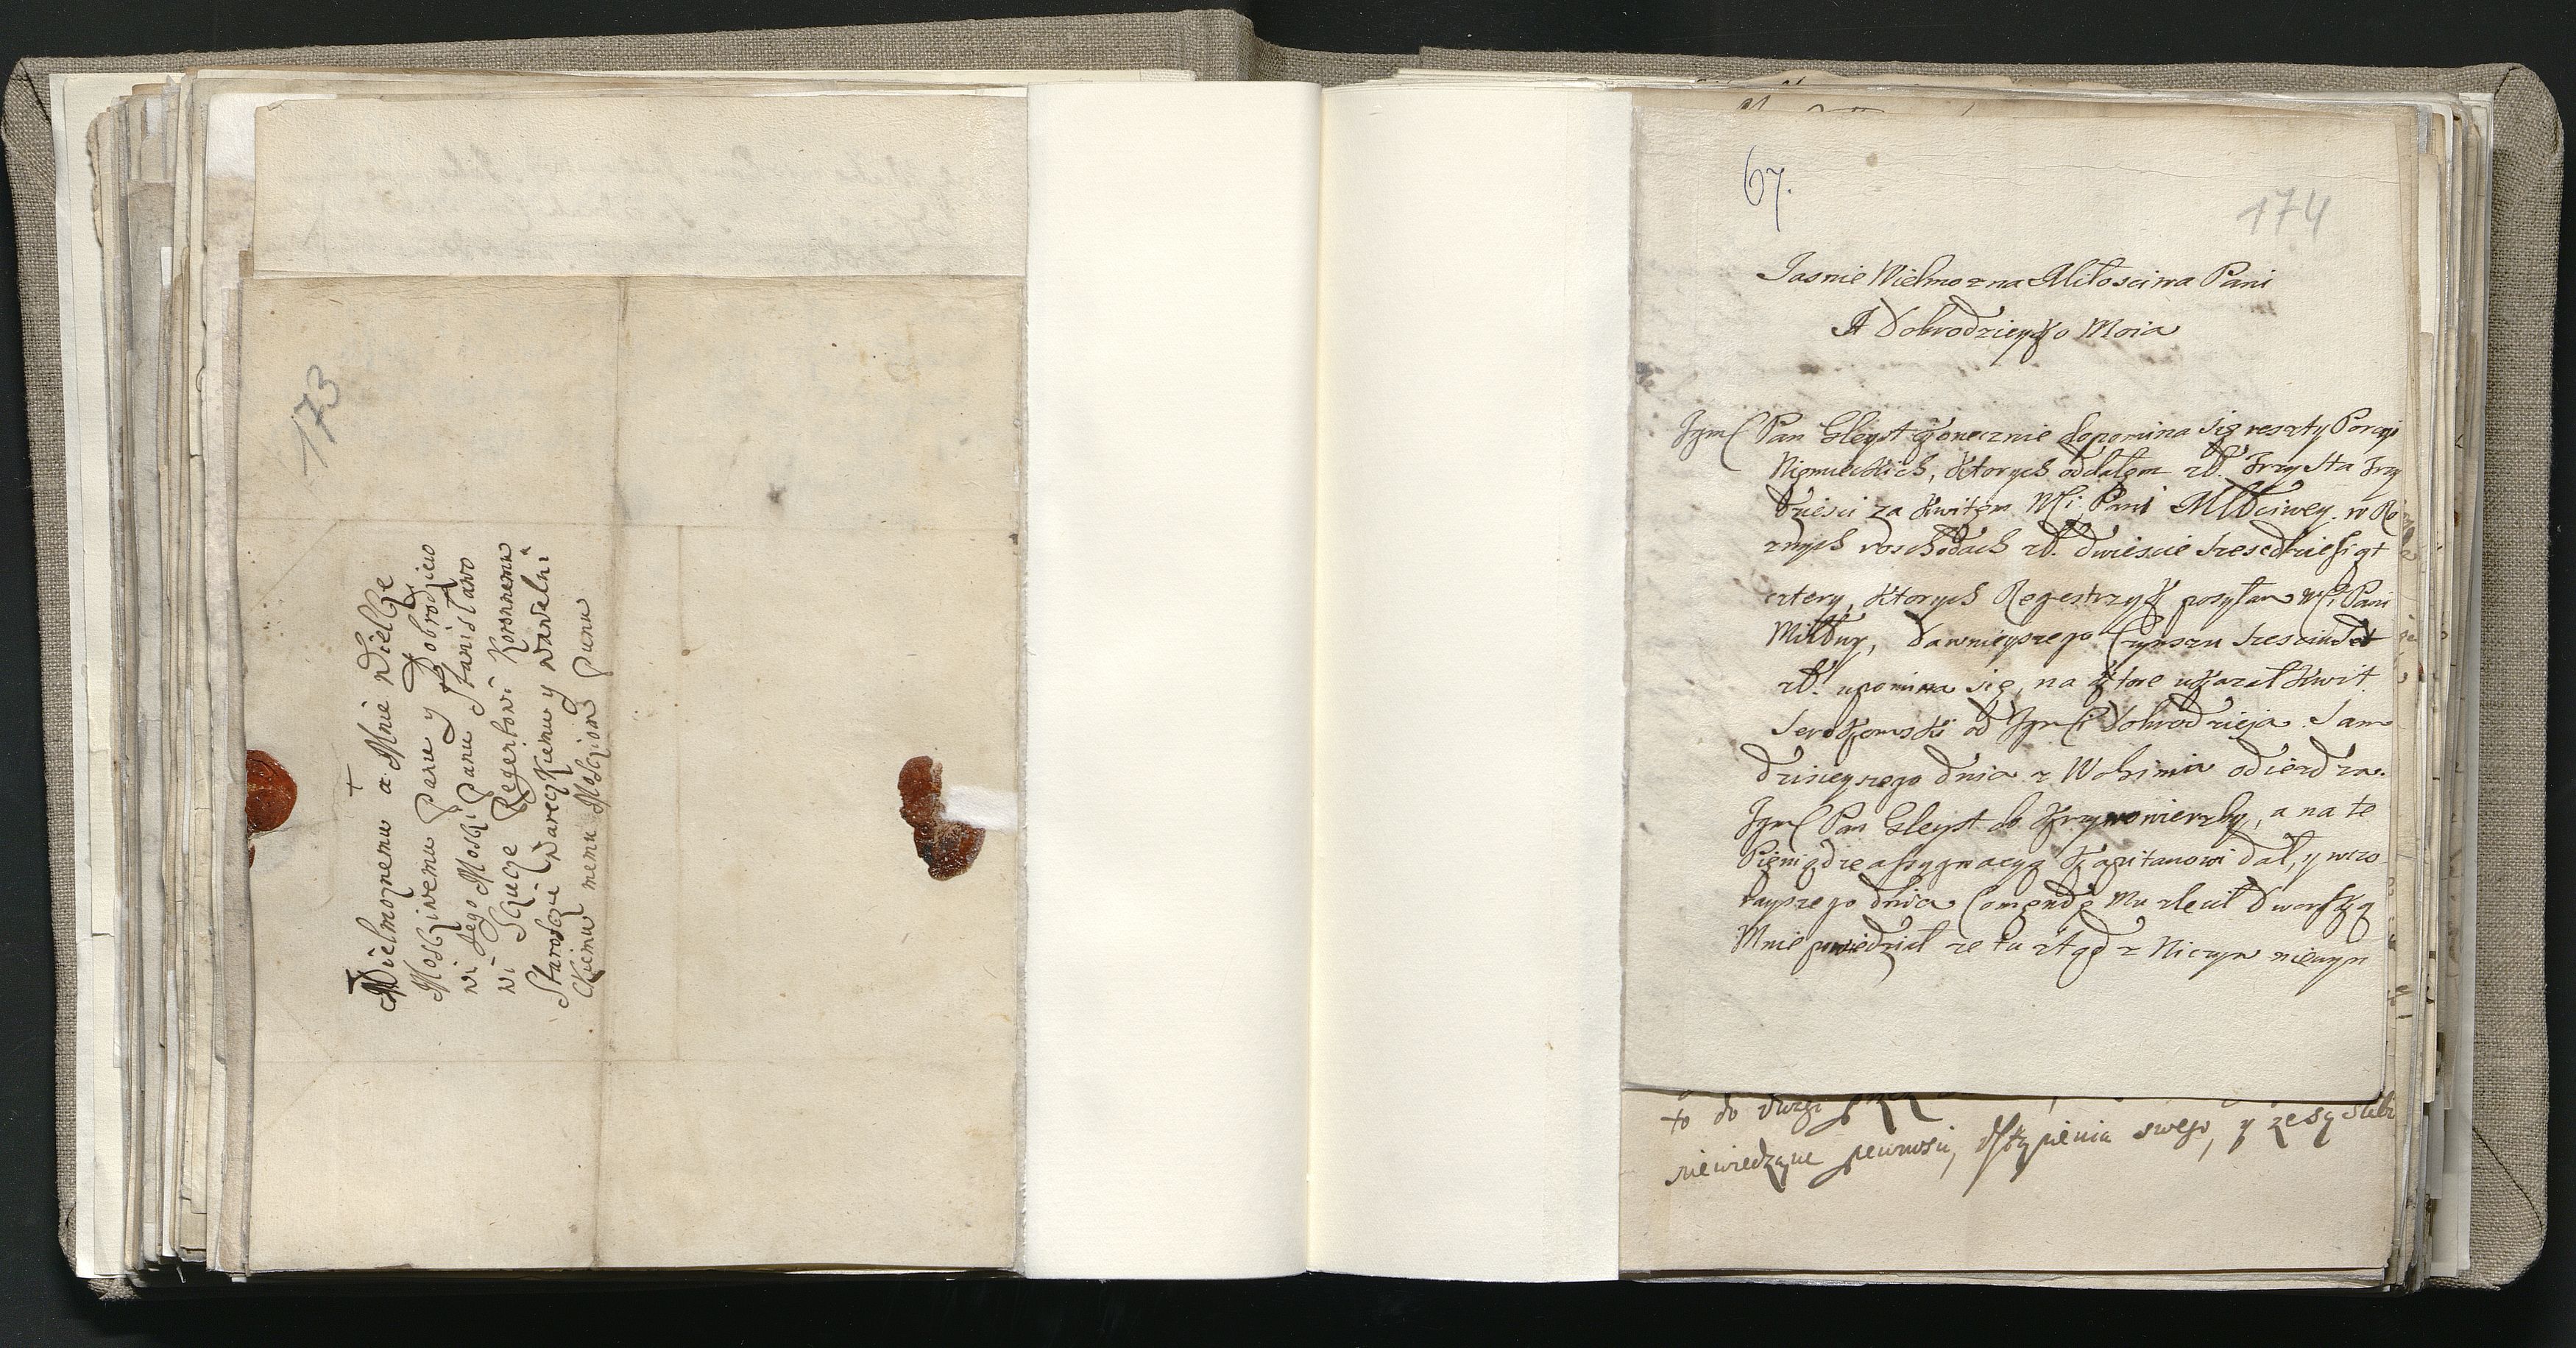 173
+
Wielmoznemu a Mnie Wielce
Mosciwemu Panu y Dobrodzieio
wi Jego Mosci Panu Stanisławo
wi Sczuce Regentowi Koronnemu
Staroscie Wareckiemu y Wawelni
ckiemu memu Mosciom Panu
67.
174
Jasnie Wielmozna Miłosciwa Pani
A Dobrodzieyko Moia
Jgm Pan Gleyst koniecznie dopomina się reszty Porcyi
Niemieckich, ktorych oddałem zł. trzysta trzy
dziesci za kwitem Pani w Ro
znych roschodach zł. dwiescie szescdziesiąt
cztery, ktorych Regestrzyk posyłam Pani
dawnieyszego Czynszu szesciuset
zł. upomina się, na ktore ukazał kwit
od Dobrodzieja. Sam
dzisieyszego dnia z Wohinia odieadza.
Jgm Pan Gleyst do Krzywowierzby, a na te
Pieniądze assygnacyą Kapitanowi dał, y wczo
rayszego dnia Comendę mu zlecił Dworską
Mnie powiedział ze tu ztąd z Niczym niewyn
to do
niewiedząc pewnosci, ustąpienia swego, y ze są